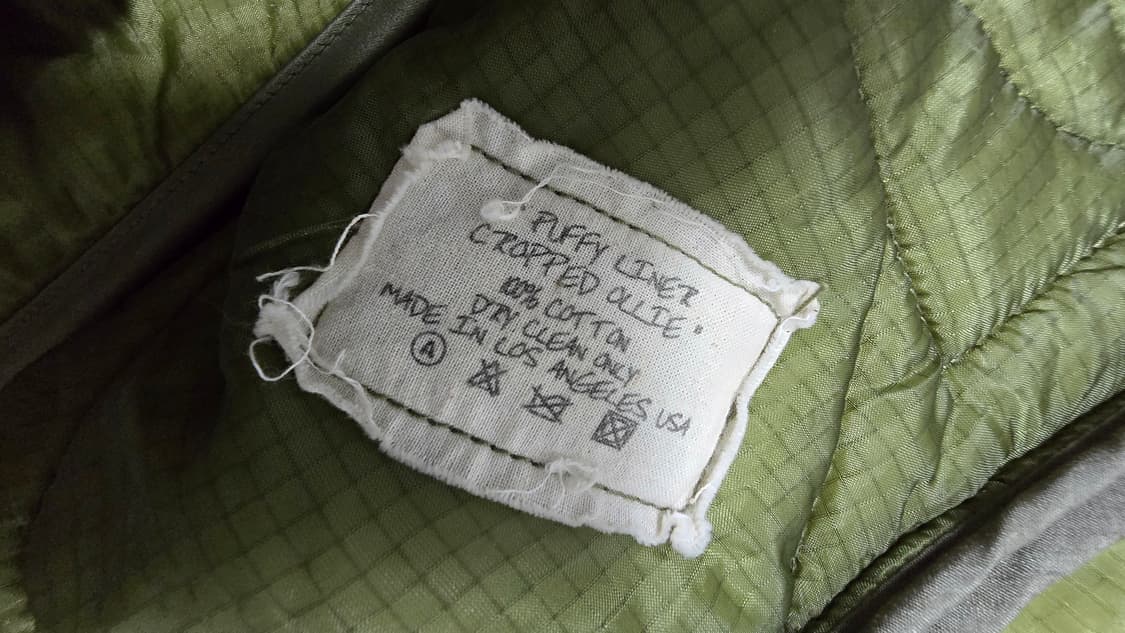 "PUFFY LINER
CROPPED OLLIE"
COTTON
DRY CLEAN ONLY
MADE IN LOS ANGELES USA
A